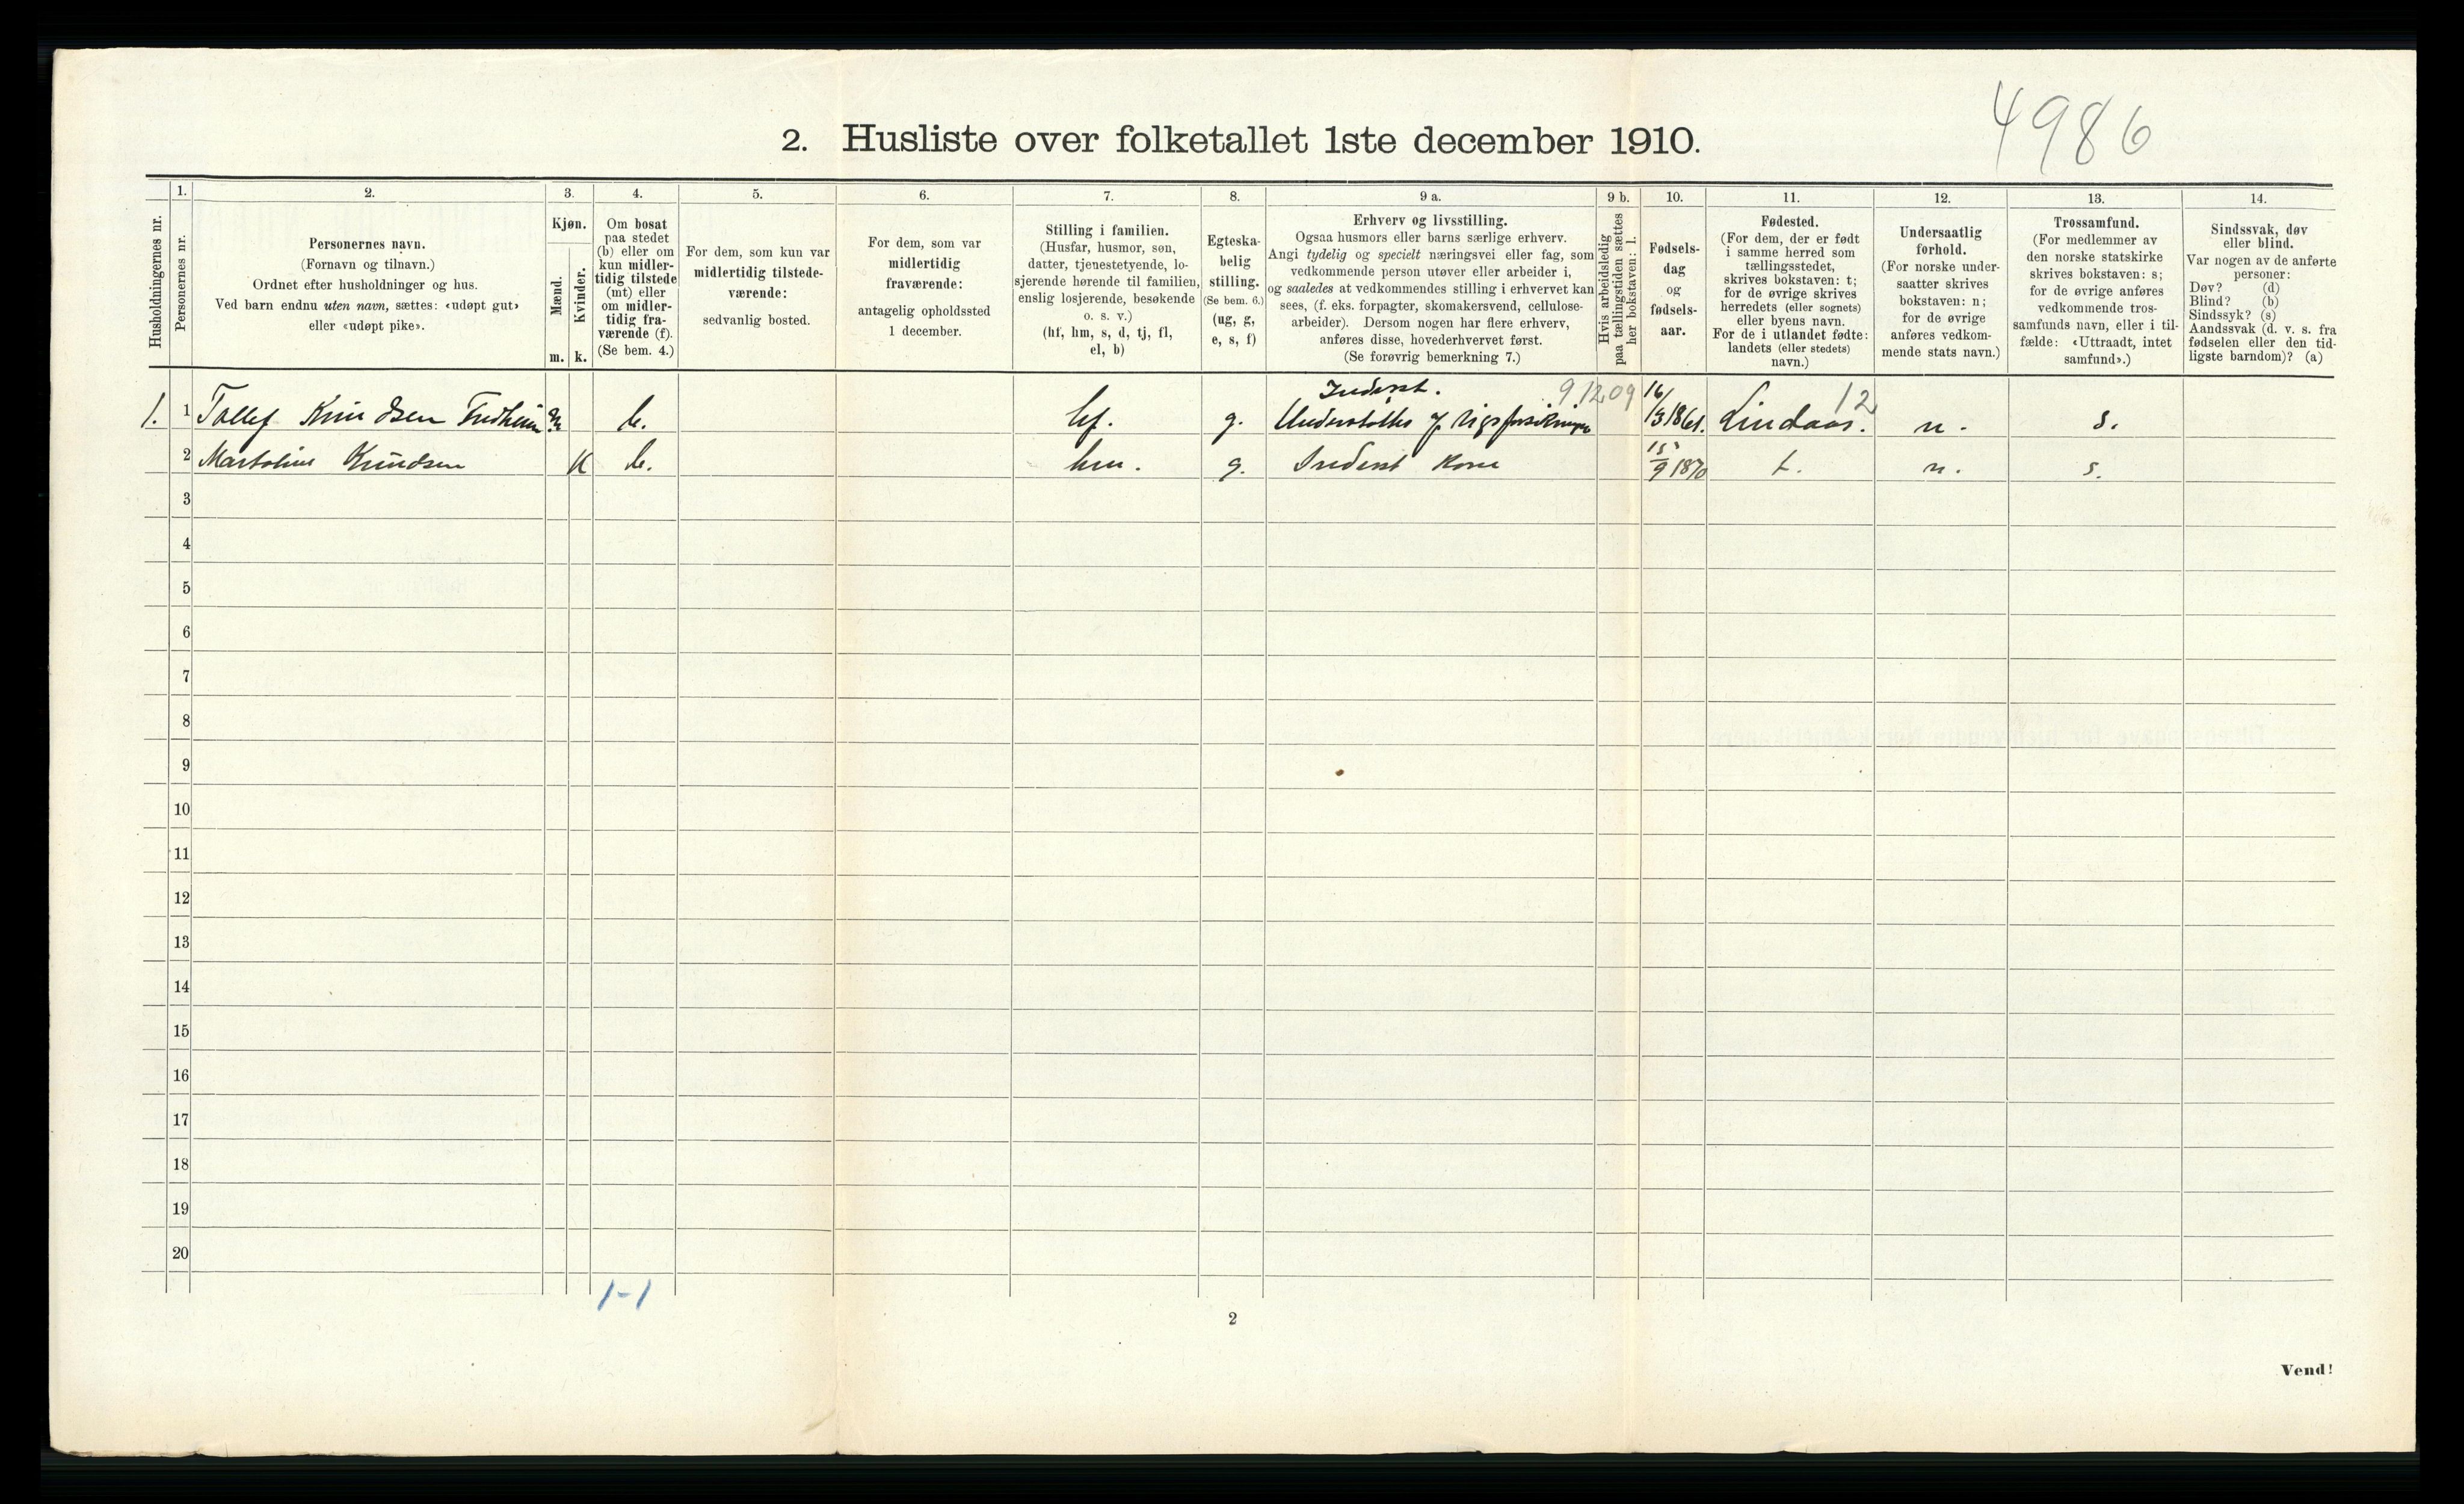 4986
2. Husliste over folketallet 1ste december 1910.
Husholdningernes nr.
1.
Personernes nr.
2.
Personernes navn.
(Fornavn og tilnavn.)
Ordnet efter husholdninger og hus.
Ved barn endnu uten navn, sættes: «udøpt gut»
eller «udøpt pike».
3.
Kjøn.
Mænd.
m.
Kvinder.
k.
4.
Om bosat
paa stedet
(b) eller om
kun midler-
tidig tilstede
(mt) eller
om midler-
tidig fra-
værende (f).
(Se bem. 4.)
5.
For dem, som kun var
midlertidig tilstede-
værende:
sedvanlig bosted.
6.
For dem, som var
midlertidig
fraværende:
antagelig opholdssted
1 december.
7.
Stilling i familien.
(Husfar, husmor, søn,
datter, tjenestetyende, lo-
sjerende hørende til familien,
enslig losjerende, besøkende
o. s. v.)
(hf, hm, s, d, tj, fl,
el, b)
8.
Egteska-
belig
stilling.
(Se bem. 6.)
(ug, g,
e, s, f)
9 a.
Erhverv og livsstilling.
Ogsaa husmors eller barns særlige erhverv.
Angi tydelig og specielt næringsvei eller fag, som
vedkommende person utøver eller arbeider i,
og saaledes at vedkommendes stilling i erhvervet kan
sees, (f. eks. forpagter, skomakersvend, cellulose-
arbeider). Dersom nogen har flere erhverv,
anføres disse, hovederhvervet først.
(Se forøvrig bemerkning 7.)
9 b.
Hvis arbeidsledig
paa tællingstiden sættes
her bokstaven: l.
10.
Fødsels-
dag
og
fødsels-
aar.
11.
Fødested.
(For dem, der er født
i samme herred som
tællingsstedet,
skrives bokstaven: t;
for de øvrige skrives
herredets (eller sognets)
eller byens navn.
For de i utlandet fødte:
landets (eller stedets)
navn.)
12.
Undersaatlig
forhold.
(For norske under-
saatter skrives
bokstaven: n;
for de øvrige
anføres vedkom-
mende stats navn.)
13.
Trossamfund.
(For medlemmer av
den norske statskirke
skrives bokstaven: s;
for de øvrige anføres
vedkommende tros-
samfunds navn, eller i til-
fælde: «Uttraadt, intet
samfund».)
14.
Sindssvak, døv
eller blind.
Var nogen av de anførte
personer:
Døv? (d)
Blind? (b)
Sindssyk? (s)
Aandssvak (d. v. s. fra
fødselen eller den tid-
ligste barndom)? (a)
Inderst. 91209 12
1. 1 Tollef Knudsen m b. hf. g. Understøttes 16/3 1861. Lindaas. n. s.
2 Knudsen K b. hm. g. Inderst kone 15/9 1870 t. n. s.
3
4
5
6
7
8
9
10
11
12
13
14
15
16
17
18
19
20
1-1
2
Vend!